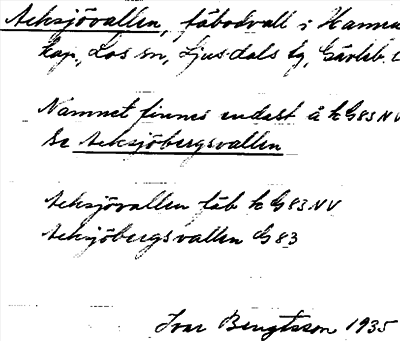 Acksjövallen, fäbodvall i Hamra
kap, Los sn, Ljusdals tg, Gävleb. l
Namnet finnes endast å k G83NV
Se Acksjöbergsvallen
Acksjövallen fäb k G83NV
Acksjöbergsvallen G83
Ivar Bengtsson 1935